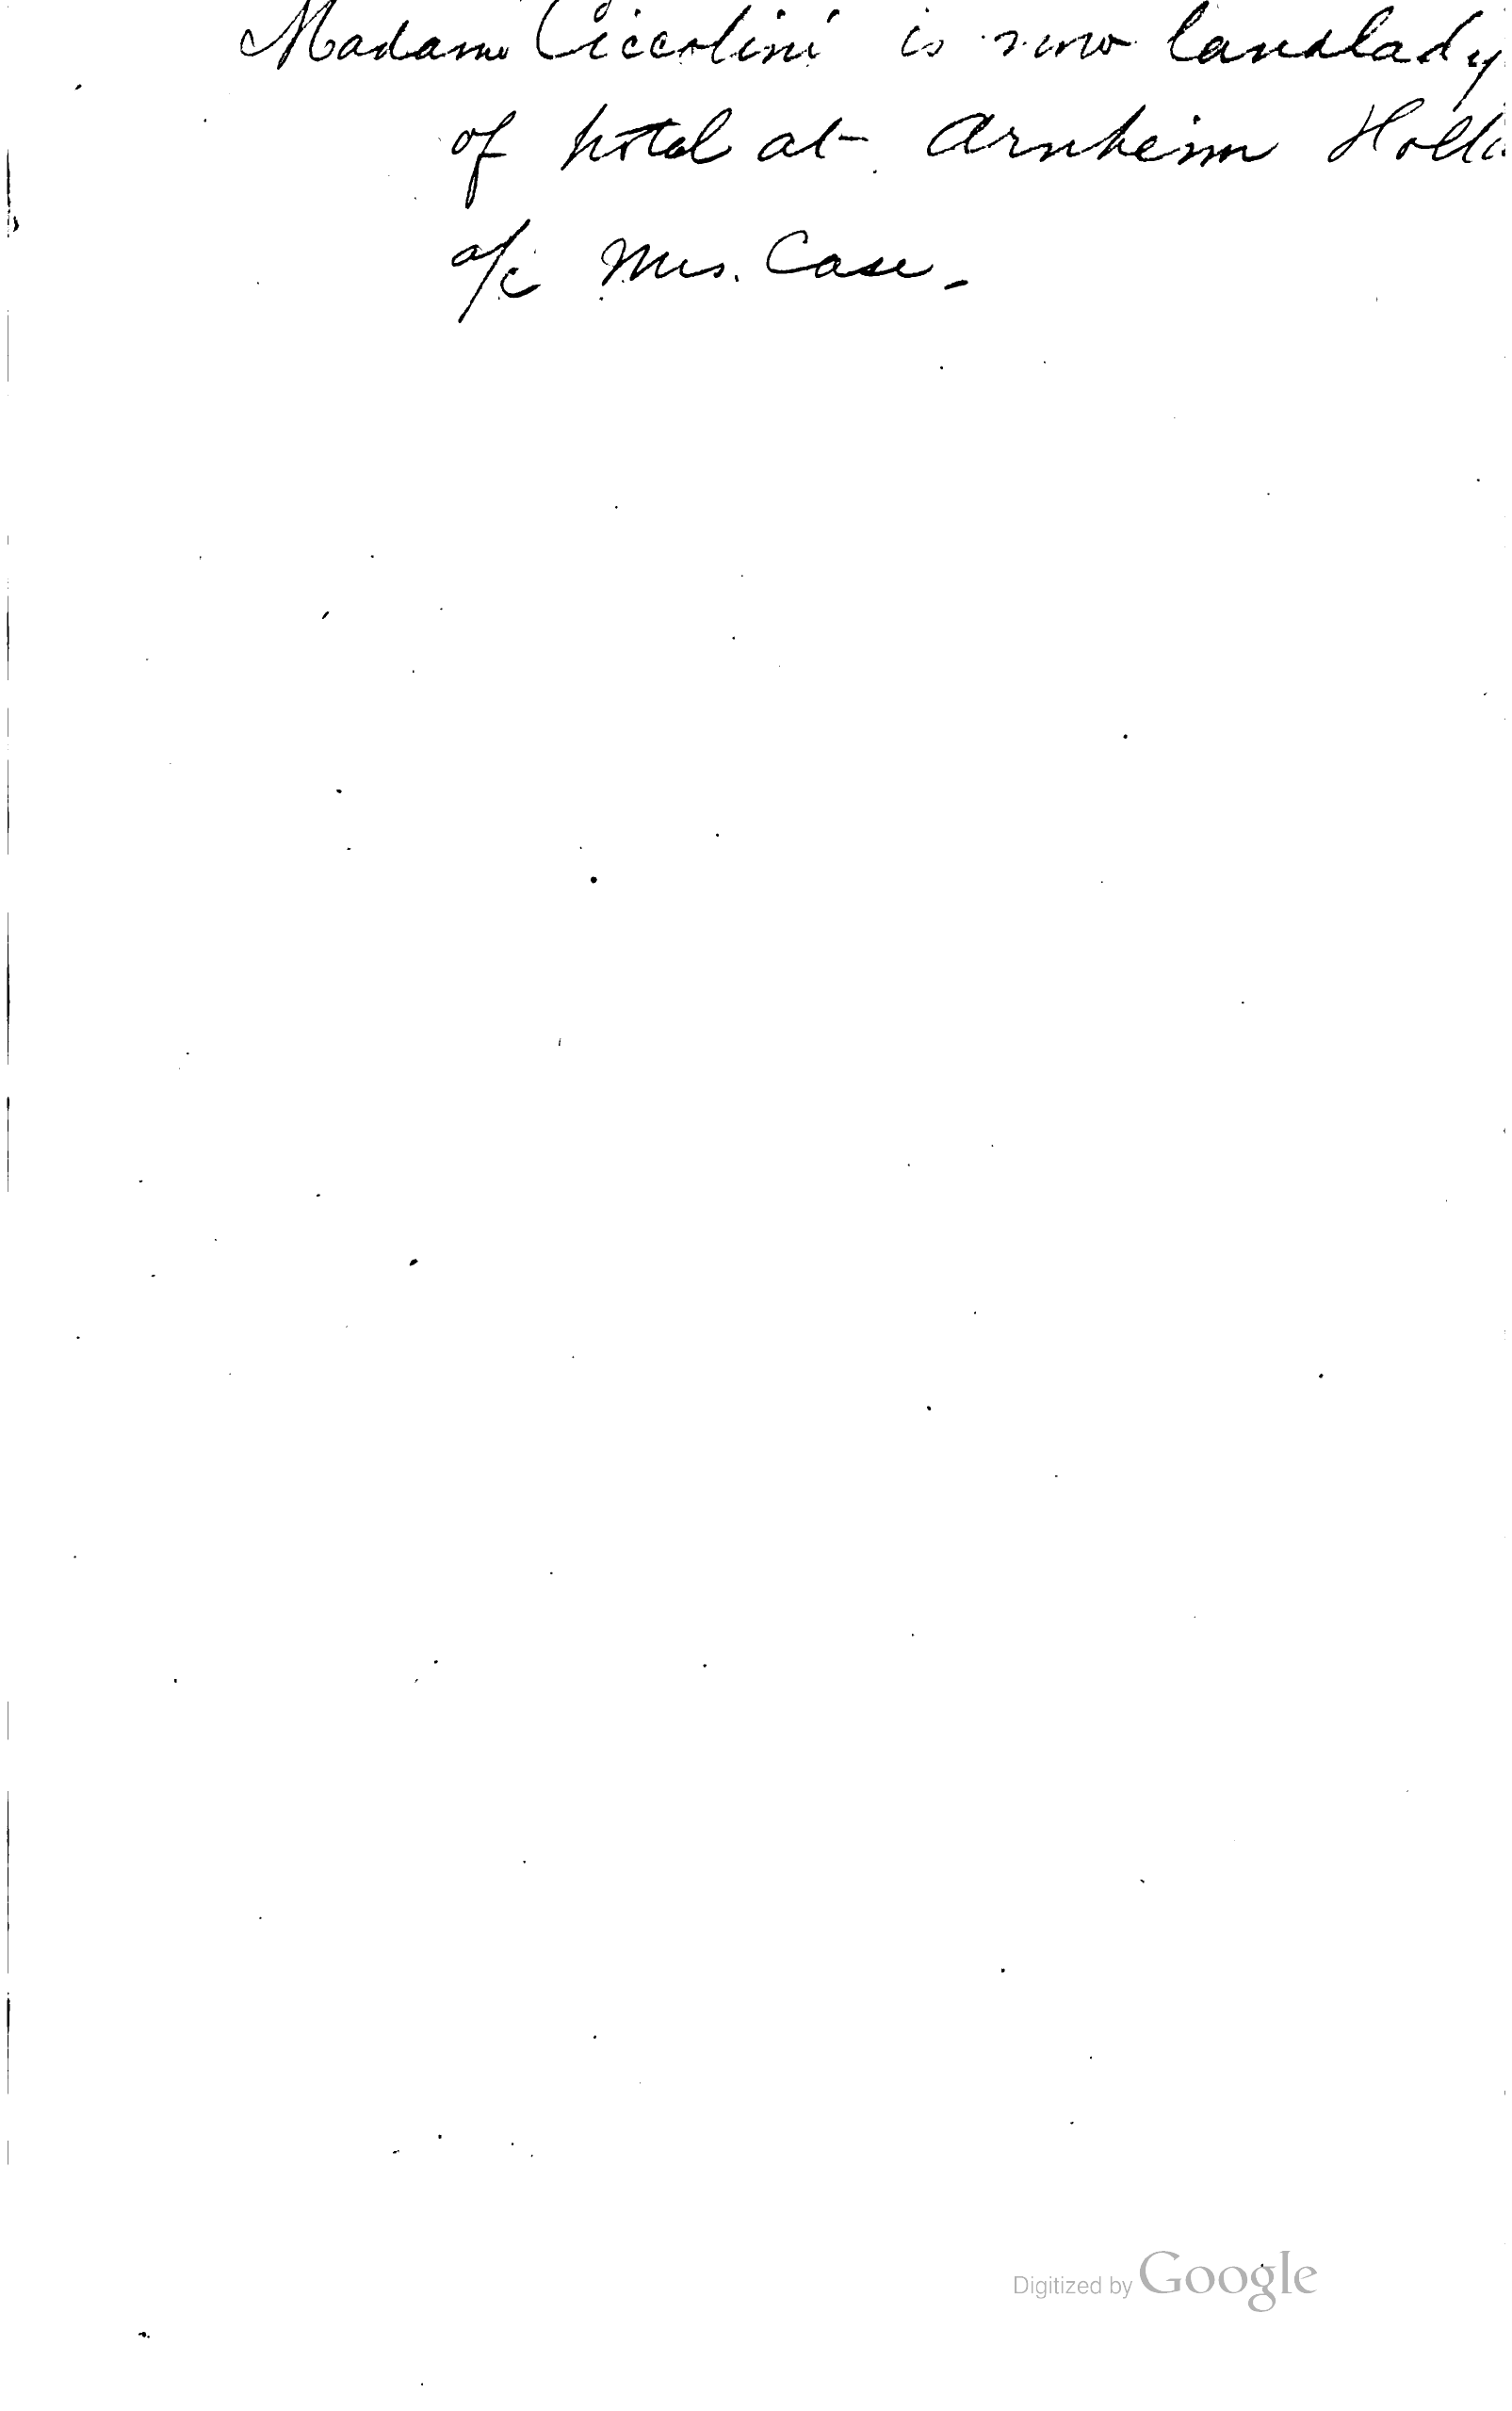 Madame Ciccolini is now landlady
of hotel at Arnheim Holla
a/c Mrs. Case.
Digitized by Google